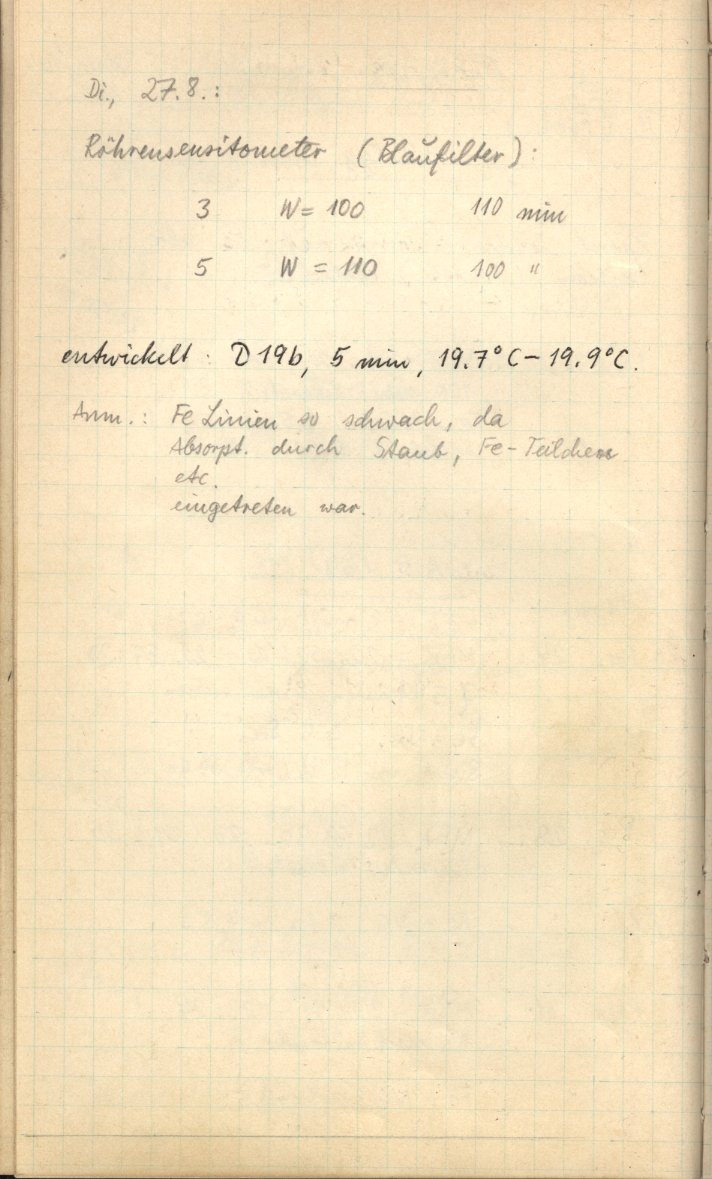 Di., 27.8.:
Röhrensensitometer (Blaufilter):
3 W = 100 110 min
5 W = 110 100 "
entwickelt: D19b, 5 min, 19.7°C – 19.9°C.
Anm.: Fe Linien so schwach, da
Absorpt. durch Staub, Fe-Teilchen
etc.
eingetreten war.